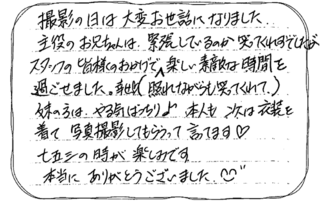 撮影の日は大変お世話になりました
主役のお兄ちゃんは、緊張しているのか笑ってくれませんでしたが
スタッフの皆様のおかげで、楽しい素敵な時間を
過ごせました。(照れながらも笑ってくれて。)
妹の方は、やる気ばっちり♪ 本人も 次は衣装を
着て 写真撮影してもらうって 言ってます♡
七五三の時が 楽しみです
本当に ありがとうございました